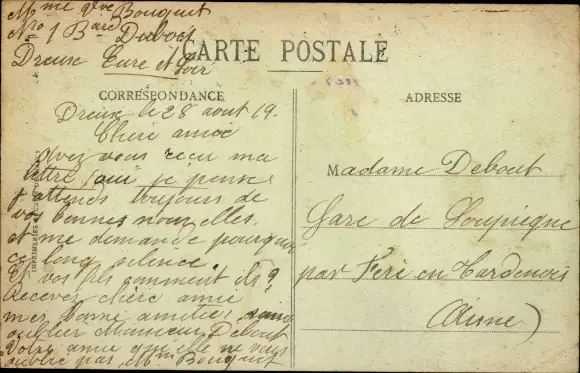 Mme Vve Bouquet
No 1 Bard Dubois
Dreux Eure et Loir
CARTE POSTALE
CORRESPONDANCE
Dreux le 28 aout 19.
Chère amie
Avez vous reçu ma
lettre, oui je pense
j attends toujours de
vos bonnes nouvelles.
et me demande pourquoi
ce long silence.
Et vos fils comment ils ?
Recevez chère amie
mes bonne amitiés sans
oublier Monsieur Debout
Votre amie qui elle ne vous
oublie pas, Mme Bouquet
ADRESSE
Madame Debout
Gare de Loupeigne
par Fere en Tardenois
(Aisne)